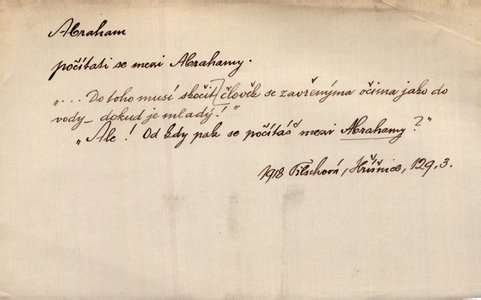 Abraham
počítati se mezi Abrahamy.
„... Do toho musí skočit [člověk se zavřenýma očima jako do
vody – dokud je mladý!"
„Ale! Od kdy pak se počítáš mezi Abrahamy?"
1918 Tilschová, Hříšnice, 129, 3.